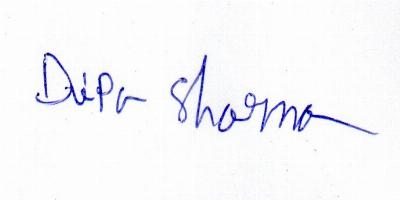 Dipa Sharma